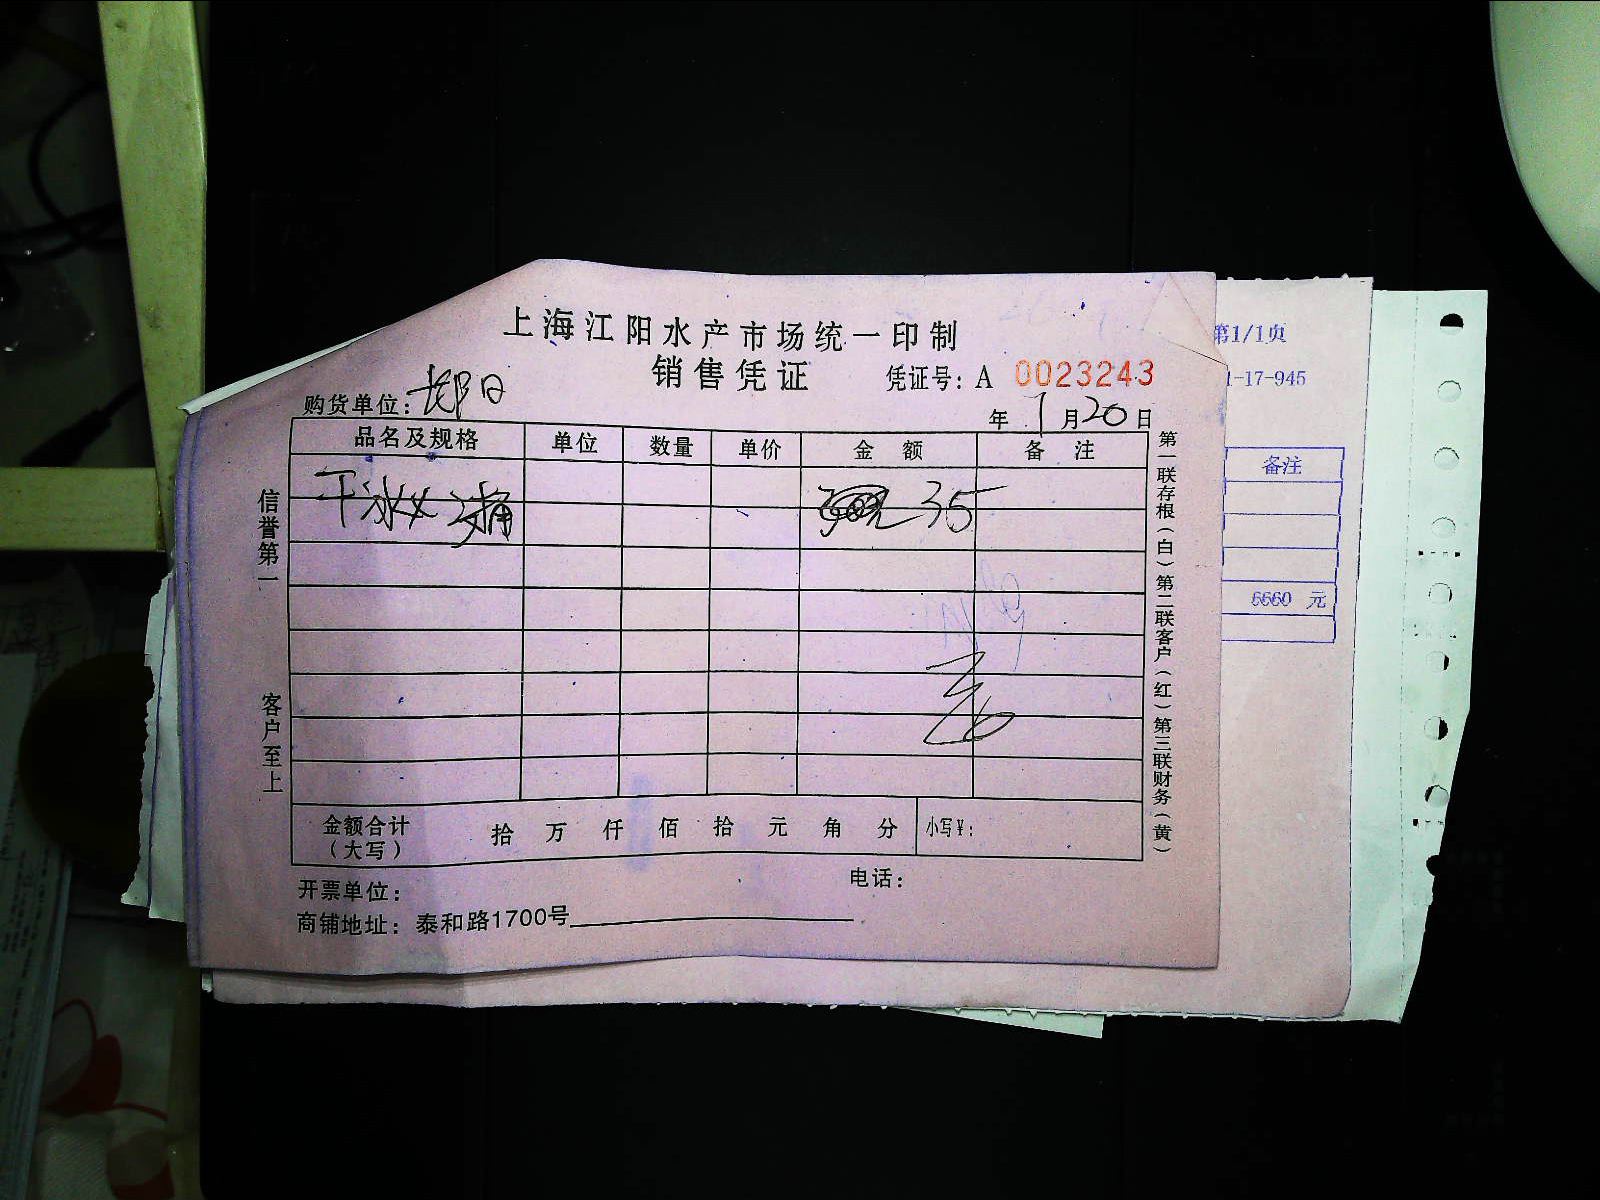 上海江阳水产市场统一印制
销售凭证 凭证号：A 0023243
购货单位：
年 1月20日
品名及规格 单位 数量 单价 金额 备注
干冰 35
信誉第一
客户至上
金额合计（大写） 拾 万 仟 佰 拾 元 角 分 小写¥：
开票单位： 电话：
商铺地址：泰和路1700号
第一联存根（白）第二联客户（红）第三联财务（黄）
第1/1页
1-17-945
备注
6660 元